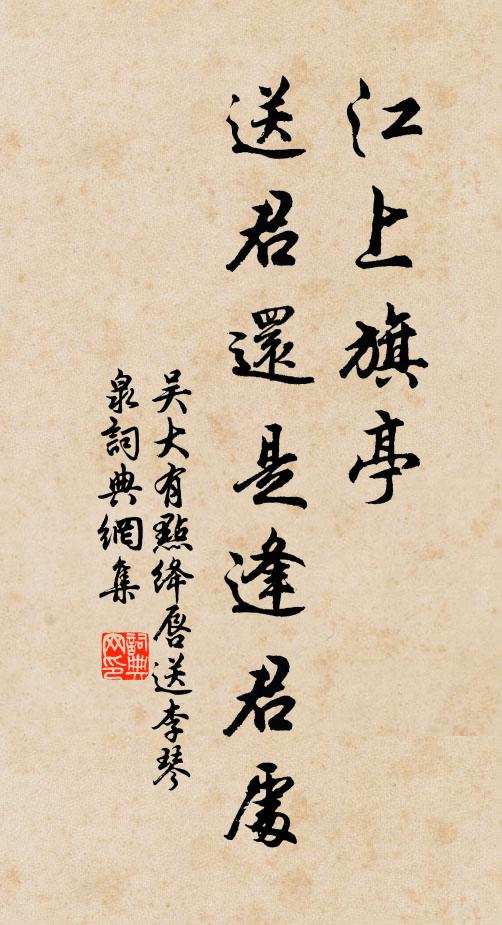 江上旗亭
送君還是逢君處
吴大有點绛唇送李琴
泉詞典網集
詞典网印